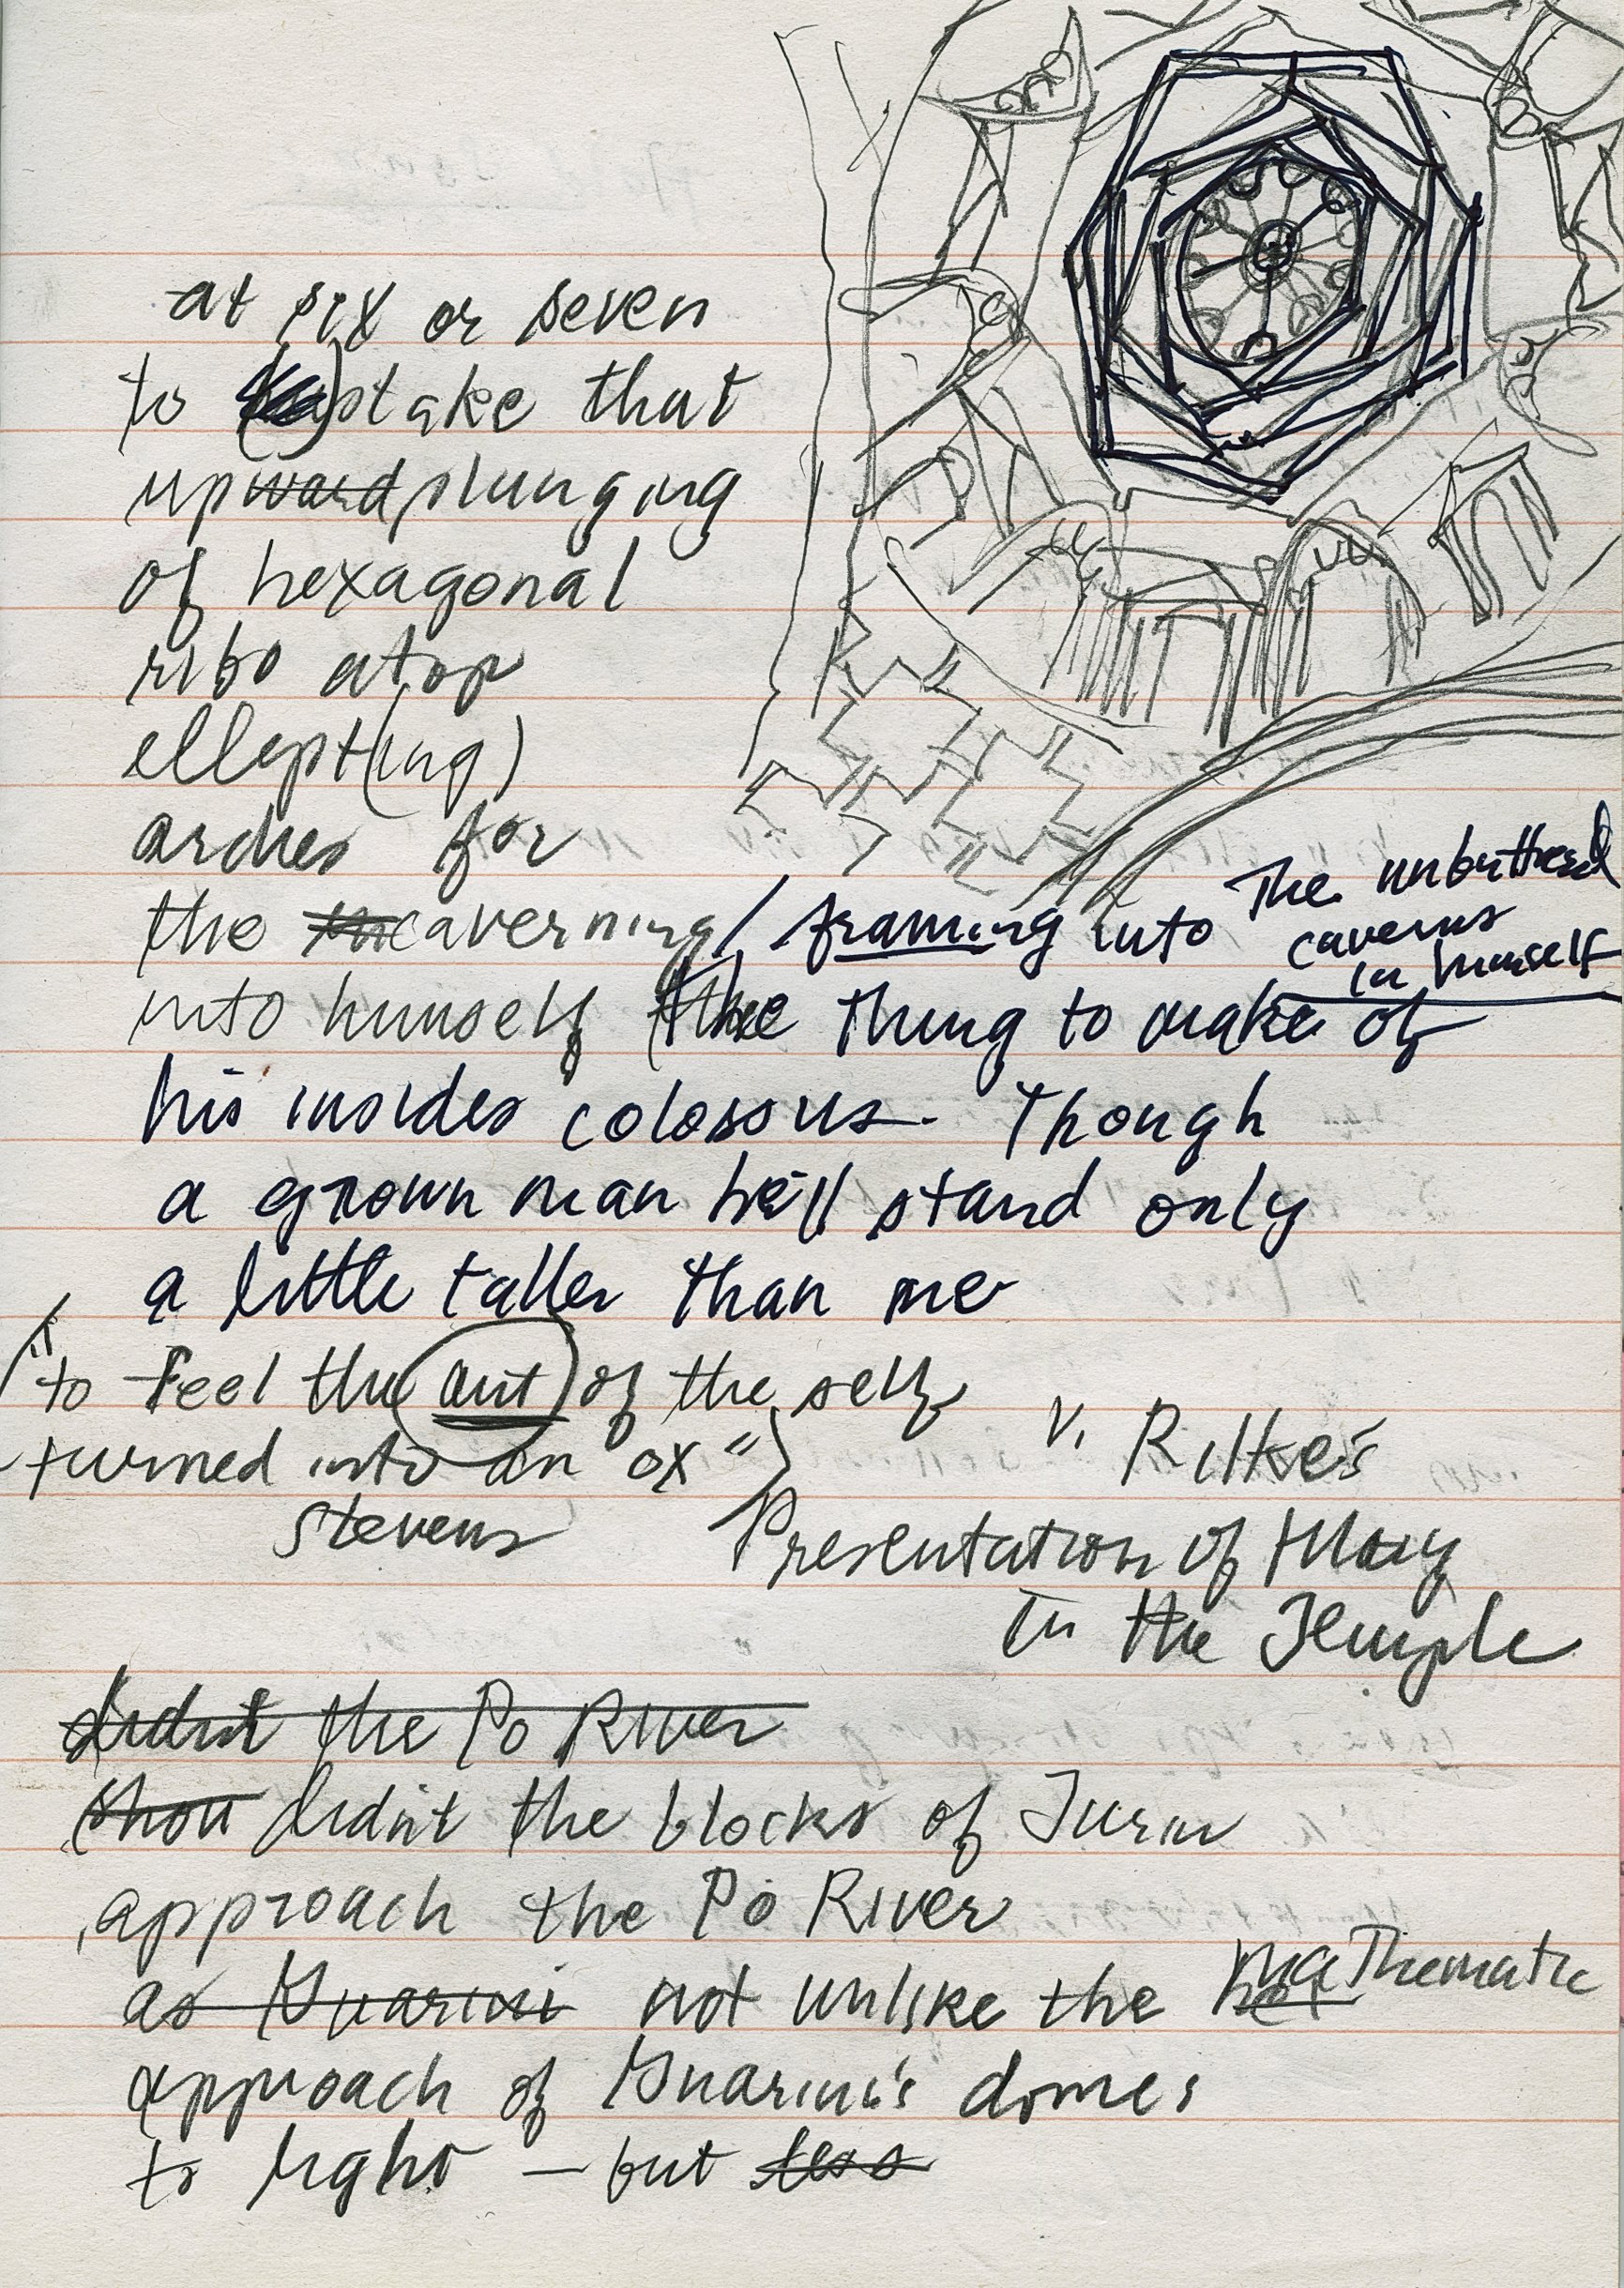 at six or seven
to stake that
upward plunging
of hexagonal
ribs atop
ellept(ing)
arches for
the caverning / framing into The unbuttressed
caverns
in himself
into himself the thing to make of
his insides colossus. Though
a grown man he'll stand only
a little taller than me
"to feel the (aut) of the self
turned into an ox")
Stevens
V. Rilke's
Presentation of Mary
in the Temple
didn't the Po River
thou didn't the blocks of Turin
approach the Po River
as Guarini not unlike the mathematic
approach of Guarini's domes
to light — but less